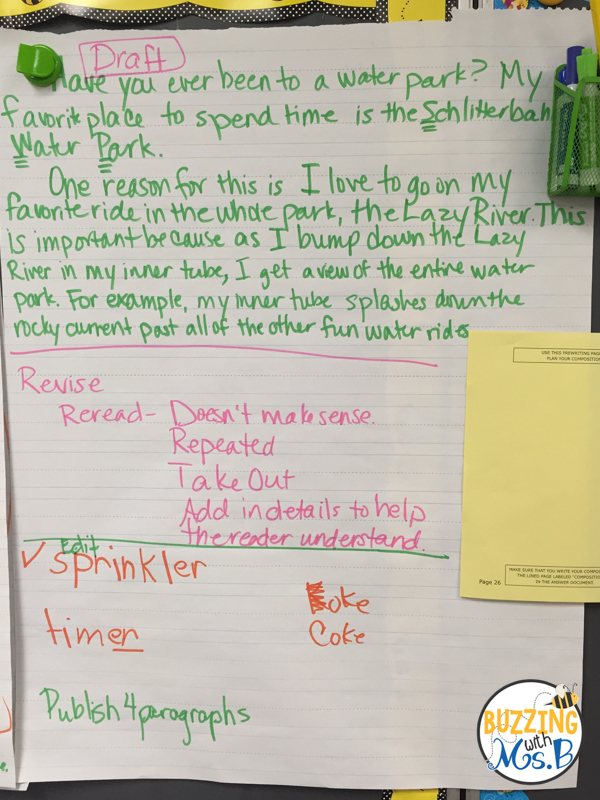 Draft
Have you ever been to a water park? My
favorite place to spend time is the Schlitterbahn
Water Park.
One reason for this is I love to go on my
favorite ride in the whole park, the Lazy River. This
is important because as I bump down the Lazy
River in my inner tube, I get a view of the entire water
park. For example, my inner tube splashes down the
rocky current past all of the other fun water rides
Revise
Reread- Doesn't make sense.
Repeated
Take Out
Add in details to help
the reader understand.
Edit
✓ sprinkler
Koke
timer
Coke
Publish 4 paragraphs
USE THIS PREWRITING
PLAN YOUR
MAKE SURE THAT YOU WRITE YOUR
THE LINED PAGE LABELED
IN THE ANSWER DOCUMENT.
Page 26
BUZZING
with
Ms. B